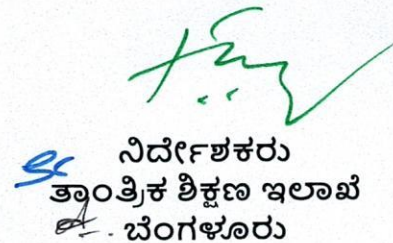 ನಿರ್ದೇಶಕರು
ತಾಂತ್ರಿಕ ಶಿಕ್ಷಣ ಇಲಾಖೆ
ಬೆಂಗಳೂರು